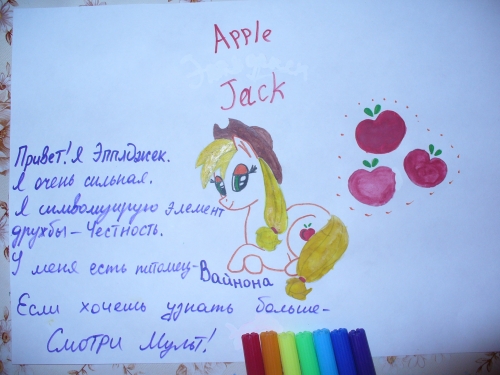 Apple
Эпплджек
Jack
Привет! Я Эпплджек.
Я очень сильная.
Я символизирую элемент
дружбы - Честность.
У меня есть питомец-Вайнона
Если хочешь узнать больше-
Смотри Мульт!